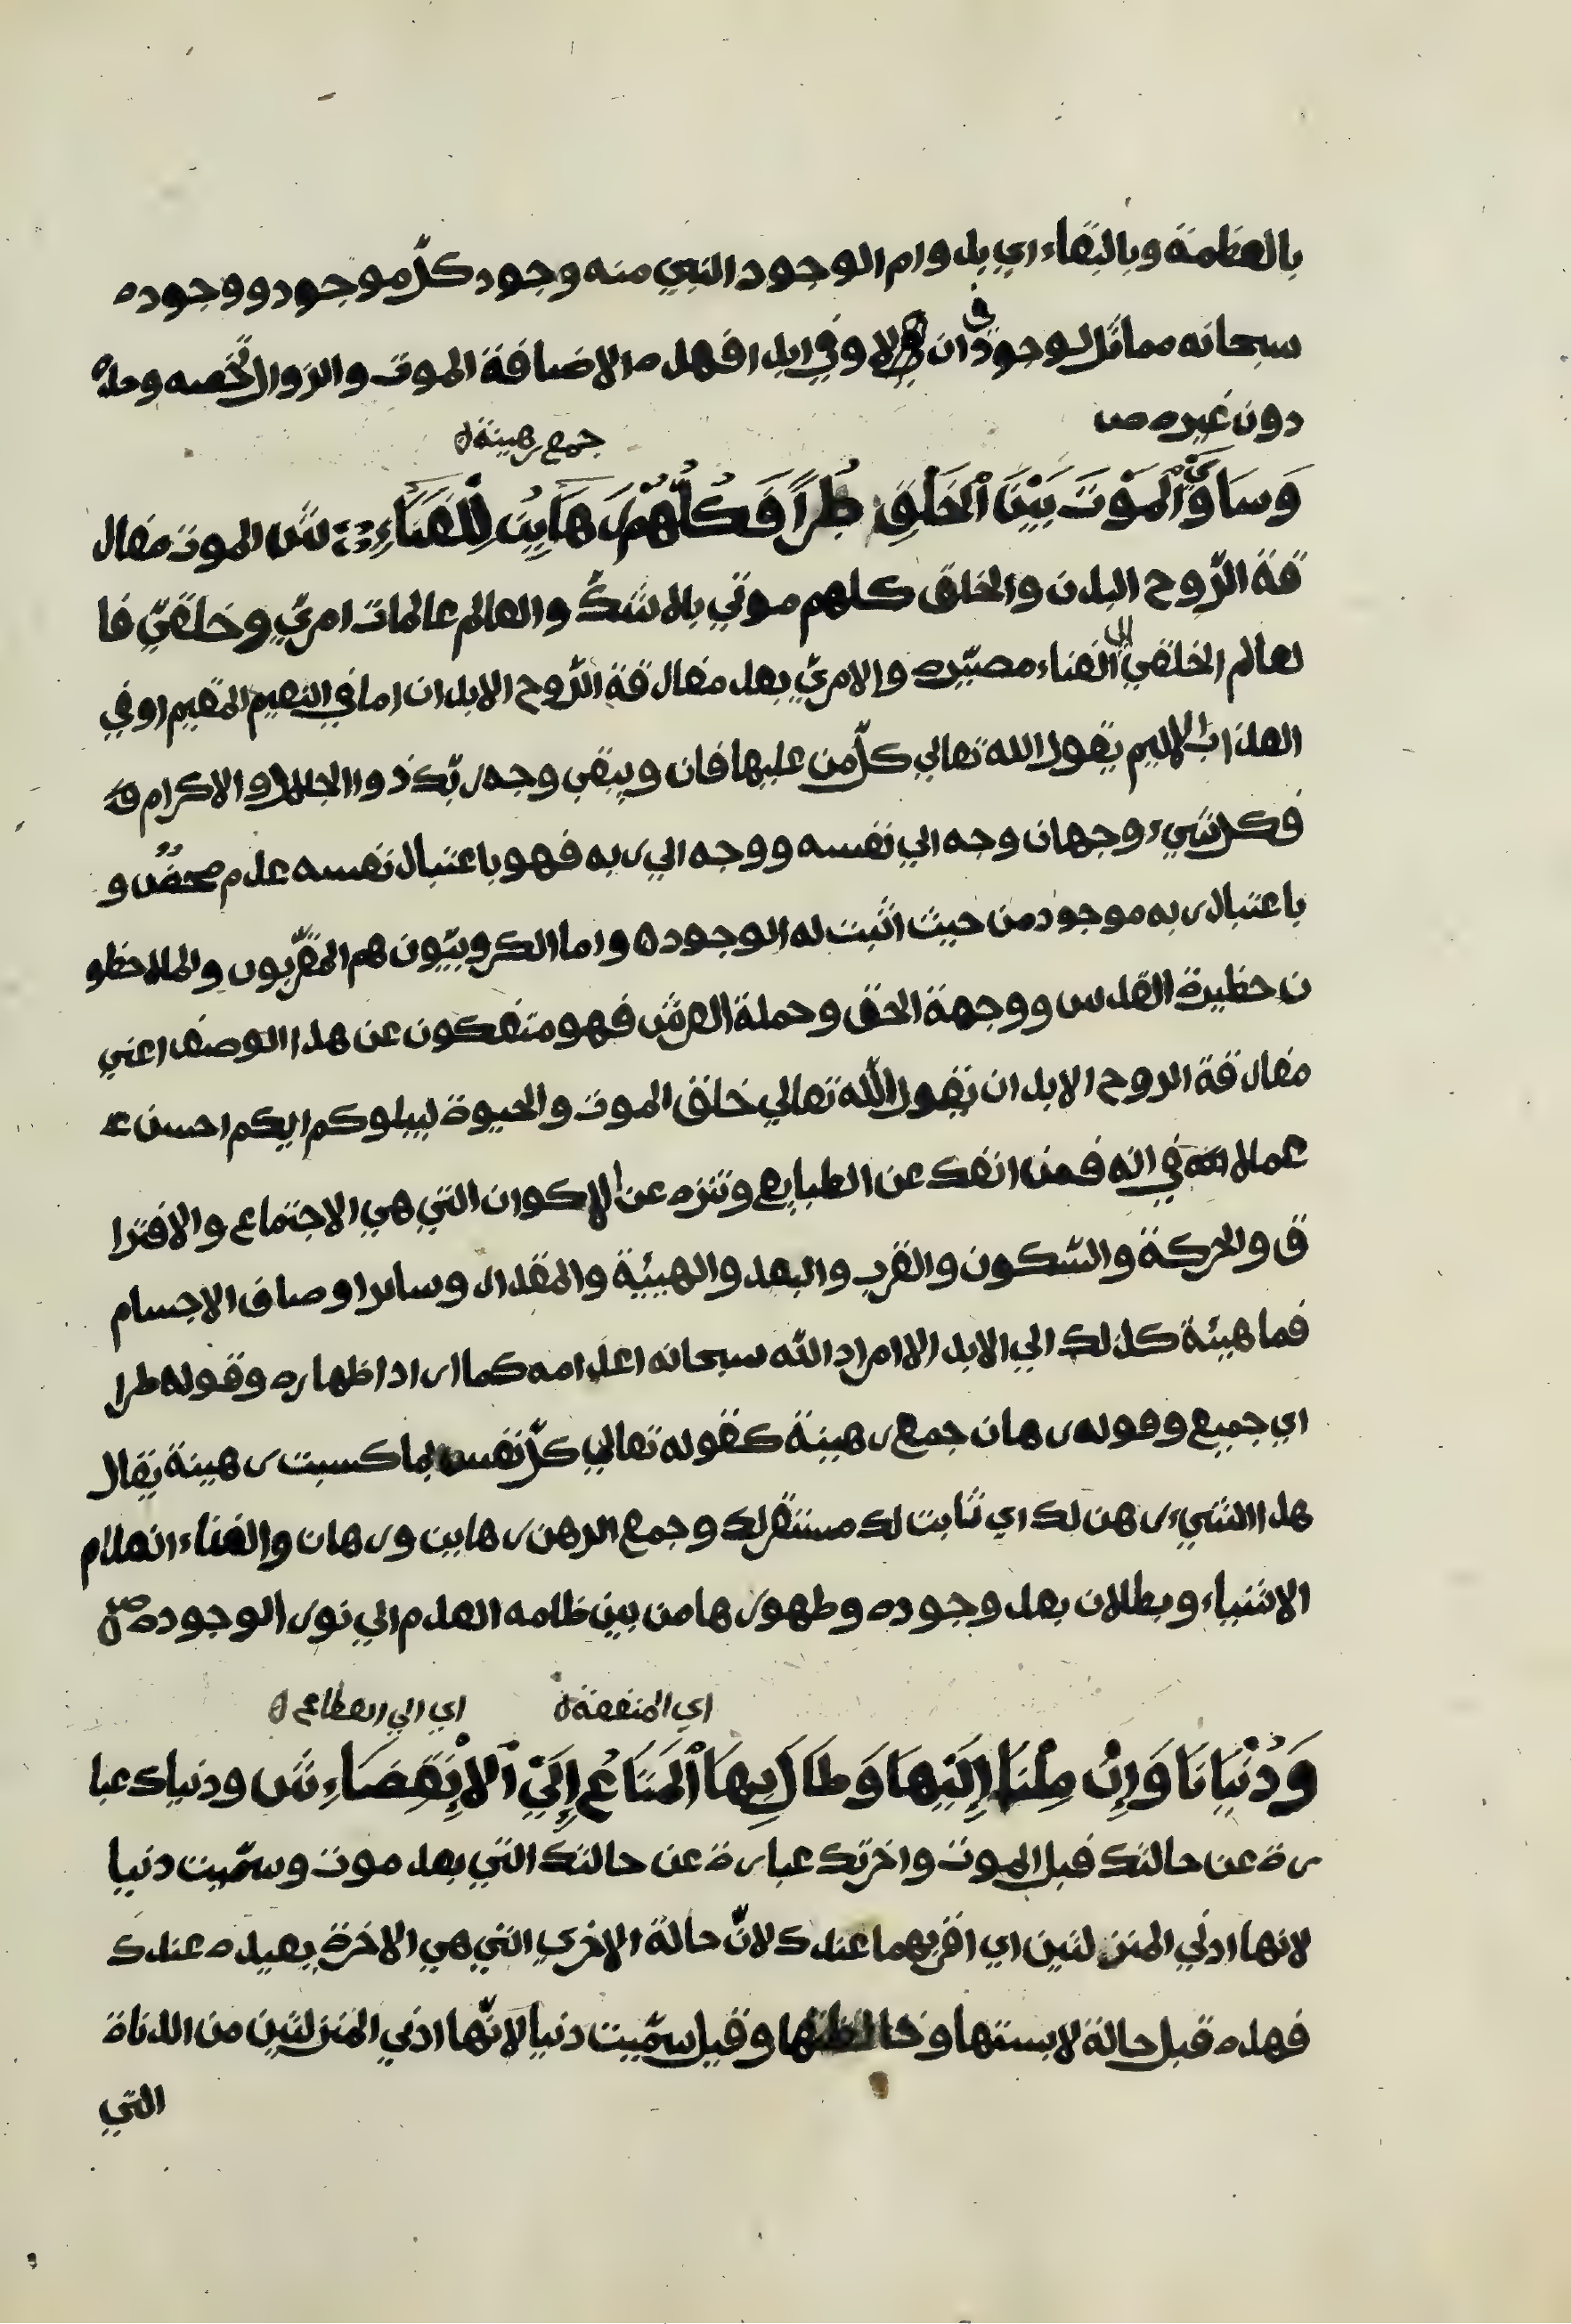 بالعظمة وبالبقاء اي بدوام الوجود الذي منه وجود كلّ موجود ووجوده
سبحانه مماثل لوجود في ان لا وفي ابدا فهذه الاضافة الموت والزوال تخصه وحده
دون غيره ص
جمع رهينة
وَسَاوَى ٱلْمَوْتَ بَيْنَ ٱلْخَلْقِ طُرًا فَكُلُّهُمْ رَهَايِنُ لِلْفَنَاءِ ش الموت مفار
قة الرّوح البدن والخلق كلهم موتي بلا شكّ والعالم عالمان امريّ وخلقيّ فا
لعالم الخلقي الى الفناء مصيّره والامريّ بعد مفارقة الرّوح الابدان اما في النعيم المقيم او في
العذاب الاليم يقول الله تعالي كلّ من عليها فان ويبقي وجه ربّك ذوا الجلال والاكرام
فكل شيء وجهان وجه الي نفسه ووجه الي ربه فهو باعتبار نفسه عدم محضٌ و
باعتبار ربه موجود من حيث اثبت له الوجود ه واما الكروبيّون هم المقرّبون والملاحظو
ن حظيرة القدس ووجهة الحق وحملة العرش فهو منفكون عن هذا الوصف اعني
مفارقة الروح الابدان يقول اللّه تعالي خلق الموت والحيوة ليبلوكم ايكم احسن ع
عملا في انه فمن انفك عن الطبايع وتنزه عن الاكوان التي هي الاجتماع والافترا
ق والحركة والسّكون والقرب والبعد والهيئة والمقدار وسائر اوصاف الاجسام
فما هيئة كذلك الي الابد الا ام اراد اللّه سبحانه اعدامه كما اراد اظهاره وقوله طرا
اي جميع وقوله رهان جمع رهينة كقوله تعالي كلّ نفس بما كسبت رهينة يقال
هذا الشيء رهن لك اي ثابت لك مستقر لك وجمع الرهن رهاين ورهان والفناء انعدام
الاشياء وبطلان بعد وجوده وطهورها من بين ظلمه العدم الي نور الوجود ه ص
اي المنفعة ه اي الي انقطاع ه
وَدُنْيَانَا وَإِنْ مِلْنَا إِلَيْهَا وَطَالَ بِهَا ٱلْمَتَاعُ إِلَيٰ ٱلْاِنْقِضَاءِ ش ودنياك عبا
رة عن حالتك قبل الموت واخرتك عبارة عن حالتك التي بعد موت وسمّيت دنيا
لانها ادني المنزلتين اي اقربهما عندك لانّ حالة الاخري التي هي الاخرة بعيده عندك
فهذه قبل حالة لابستها وخالطتها وقيل سمّيت دنيا لانّها ادني المنزلتين من الدناة
التي